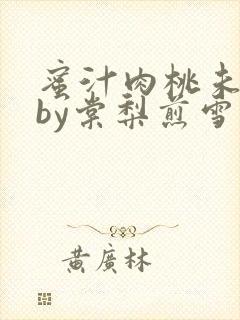 蜜汁肉桃未
by棠梨煎雪
黄廣林